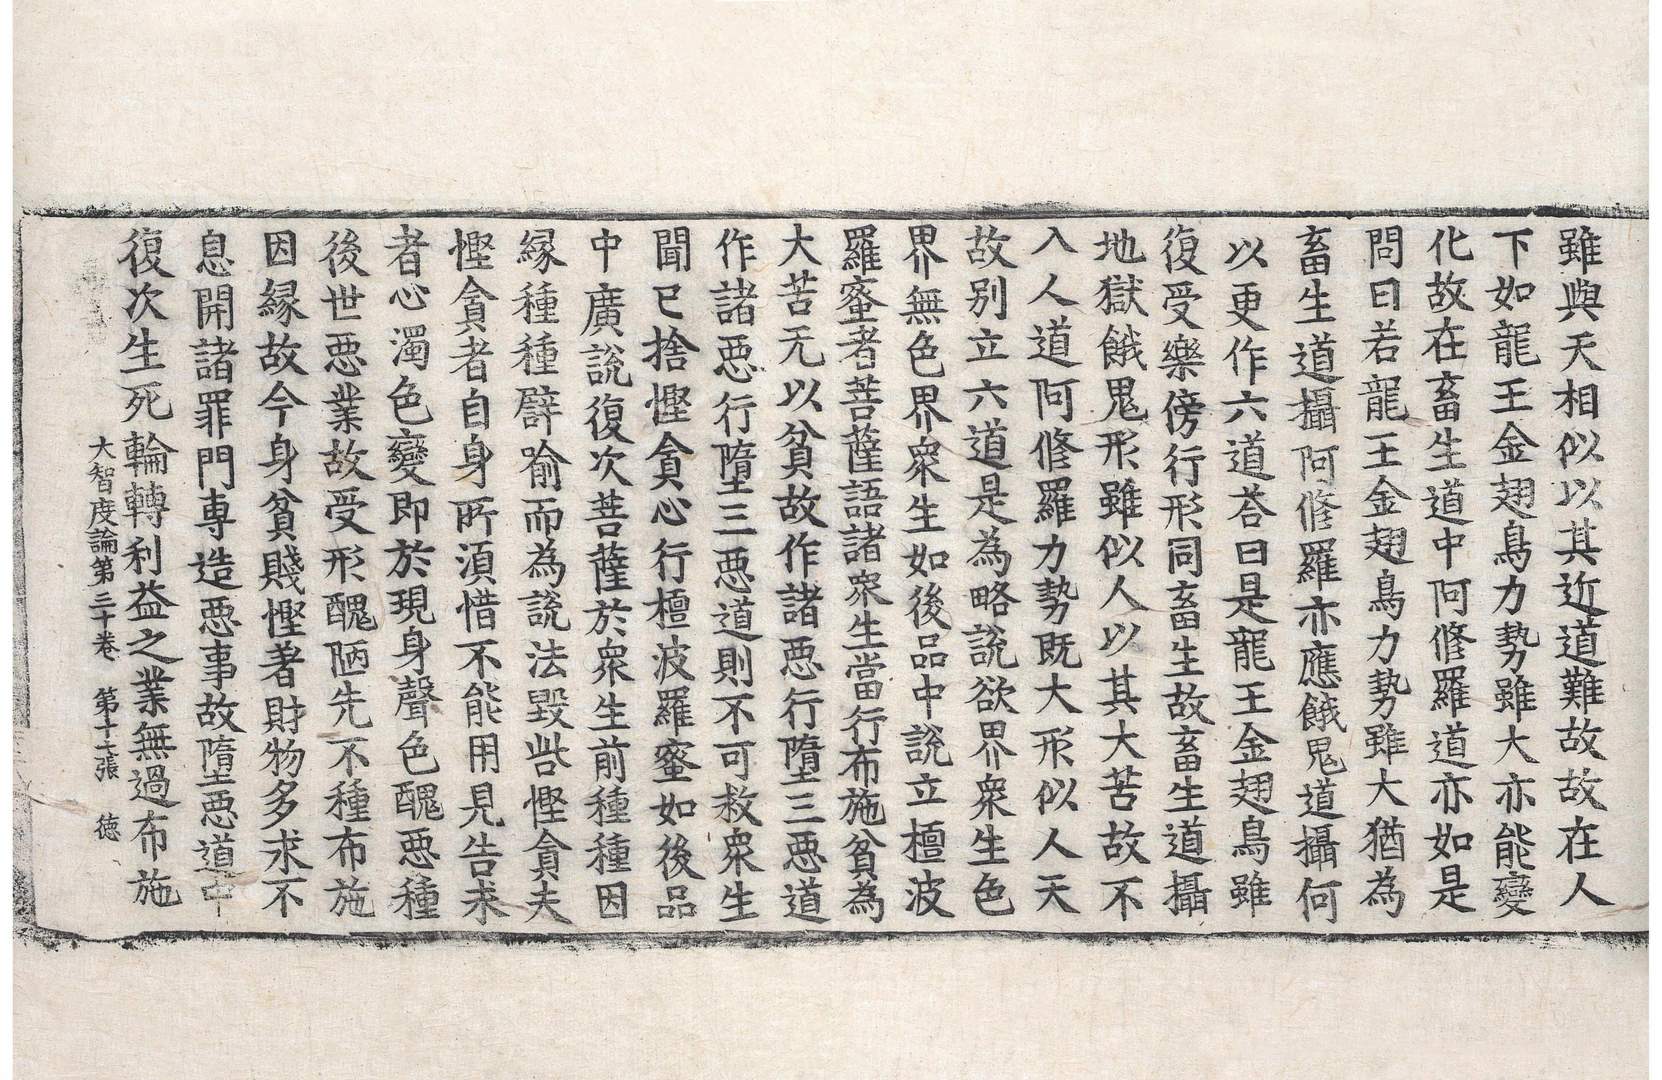 雖與天相似以其近道難故故在人
下如龍王金翅鳥力勢雖大亦能變
化故在畜生道中阿修羅道亦如是
問曰若龍王金翅鳥力勢雖大猶為
畜生道攝阿修羅亦應餓鬼道攝何
以更作六道荅曰是龍王金翅鳥雖
復受樂傍行形同畜生故畜生道攝
地獄餓鬼形雖似人以其大苦故不
入人道阿修羅力勢既大形似人天
故别立六道是為略說欲界衆生色
界無色界衆生如後品中說立檀波
羅蜜者菩薩語諸衆生當行布施貧為
大苦无以貧故作諸惡行墮三惡道
作諸惡行墮三惡道則不可救衆生
聞已捨慳貪心行檀波羅蜜如後品
中廣說復次菩薩於衆生前種種因
緣種種譬喻而為說法毀呰慳貪夫
慳貪者自身所須惜不能用見告求
者心濁色變即於現身聲色醜惡種
後世惡業故受形醜陋先不種布施
因緣故今身貧賤慳著財物多求不
息開諸罪門專造惡事故墮惡道中
復次生死輪轉利益之業無過布施
大智度論第三十卷 第十七張 德